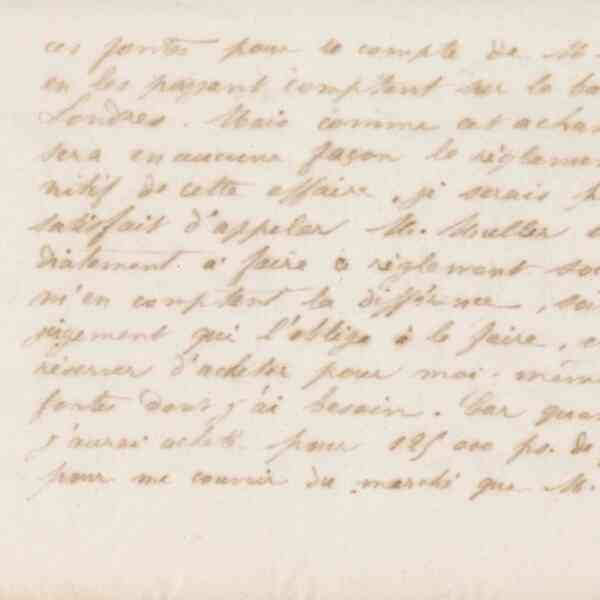 ces fontes pour le compte de M.
en les payant comptant sur la ba
Londres. Mais comme cet achan
sera en aucune façon le règlemen
nitif de cette affaire, je serais p
satisfait d'appeler M. Muller
diatement à faire ce règlement soi
m'en comptant la différence, soi
jugement qui l'oblige à le faire, e
réserver d'acheter pour moi-même
fontes dont j'ai besoin. Car quan
j'aurai acheté pour 125 000 ps. de
pour me couvrir du marché que M.